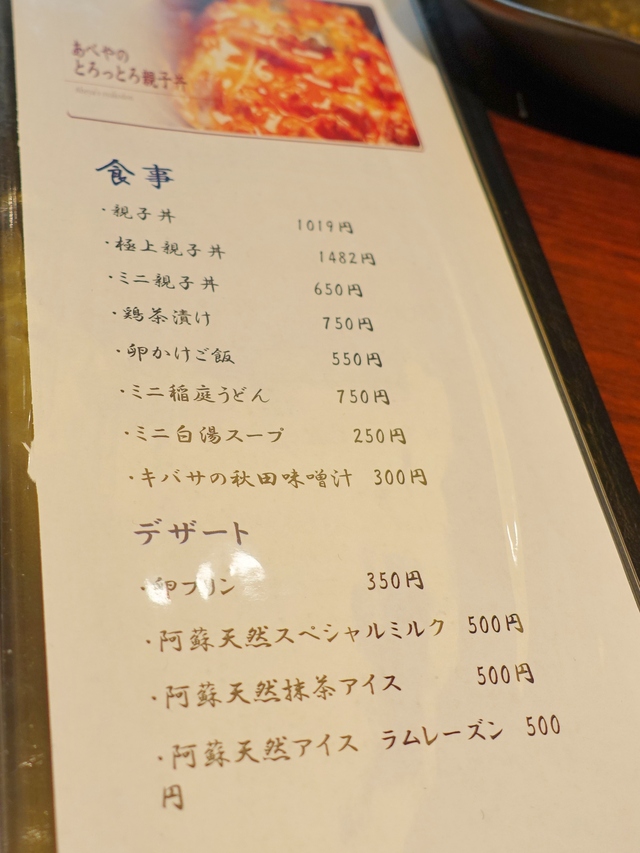 あべやの
とろっとろ親子丼
食事
・親子丼 1019円
・極上親子丼 1482円
・ミニ親子丼 650円
・鶏茶漬け 750円
・卵かけご飯 550円
・ミニ稲庭うどん 750円
・ミニ白湯スープ 250円
・キバサの秋田味噌汁 300円
デザート
・卵プリン 350円
・阿蘇天然スペシャルミルク 500円
・阿蘇天然抹茶アイス 500円
・阿蘇天然アイス ラムレーズン 500
円